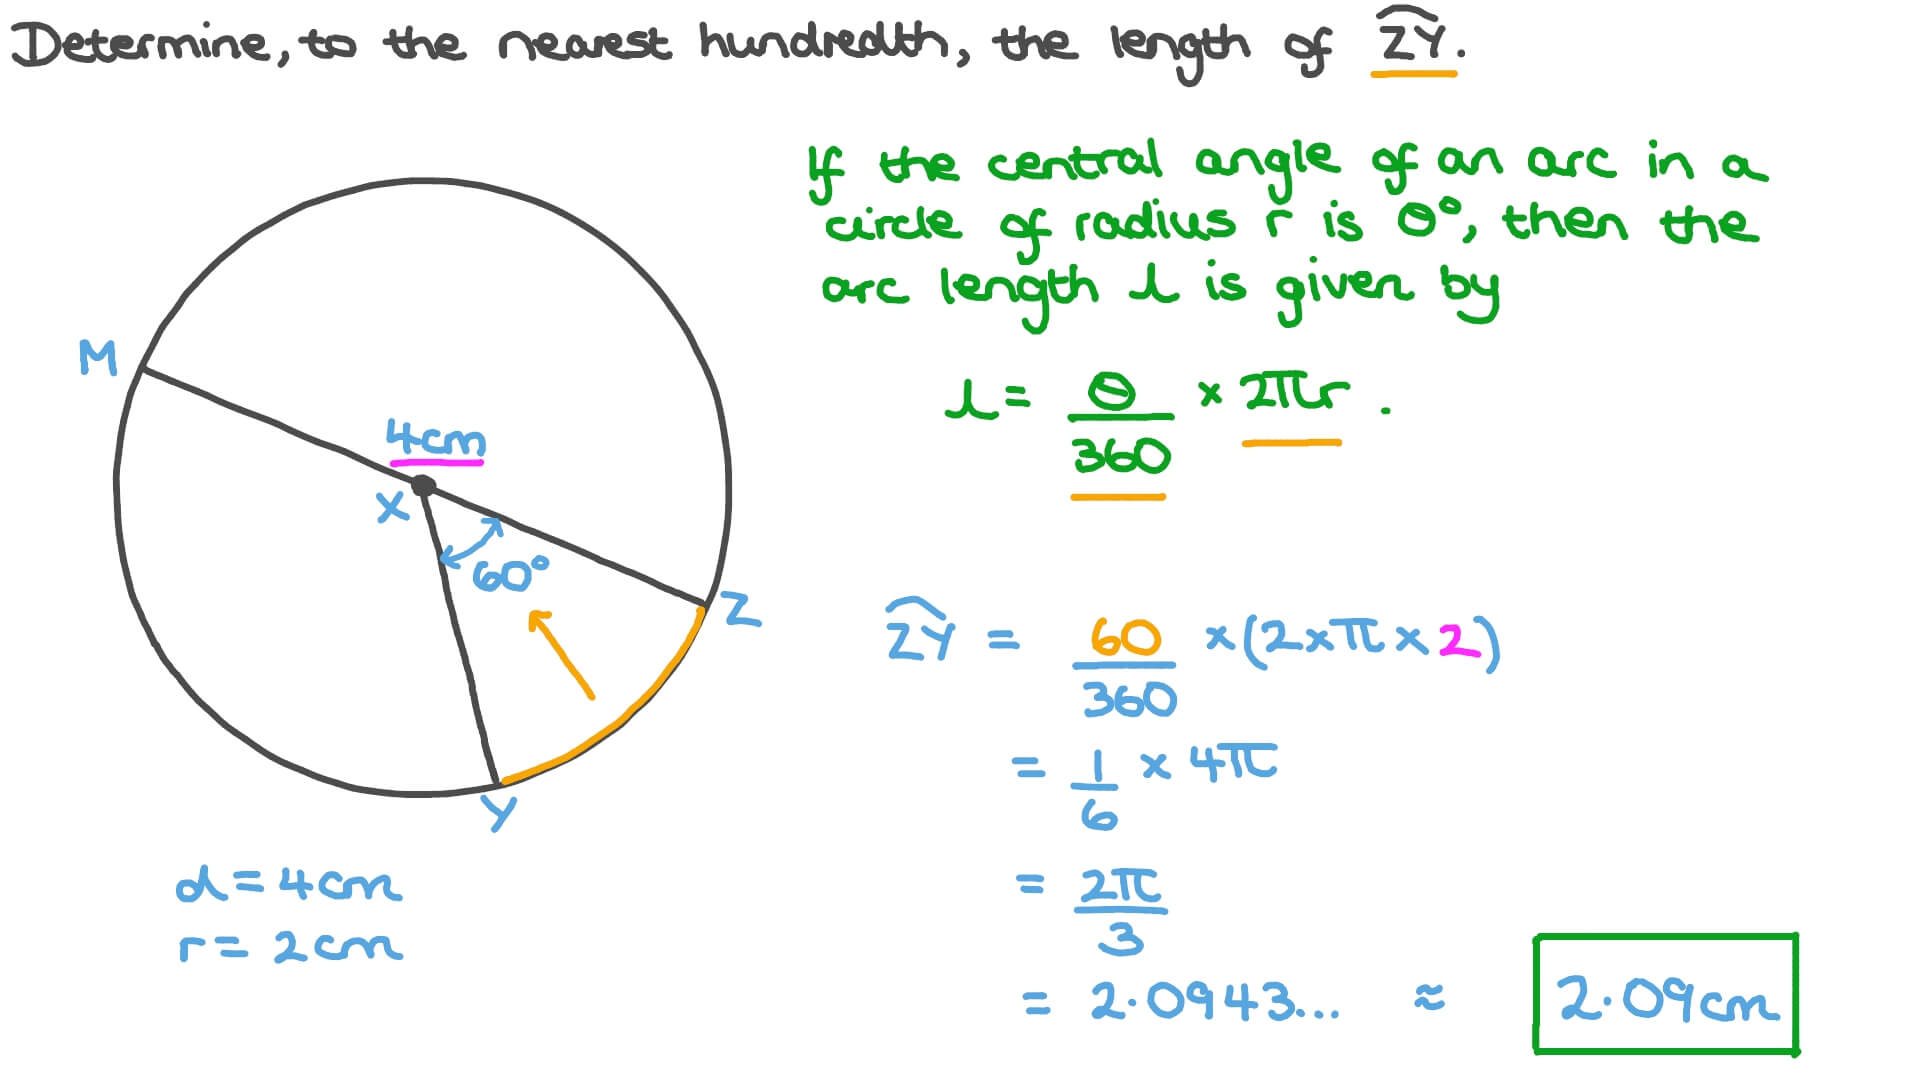 Determine, to the nearest hundredth, the length of \overset{\frown}{ZY}.
If the central angle of an arc in a
circle of radius r is θ°, then the
arc length l is given by
l = θ/360 × 2πr.
M
4cm
X
60°
Z
Y
d = 4cm
r = 2cm
\overset{\frown}{ZY} = 60/360 × (2 × π × 2)
= 1/6 × 4π
= 2π/3
= 2.0943... ≈ 2.09cm